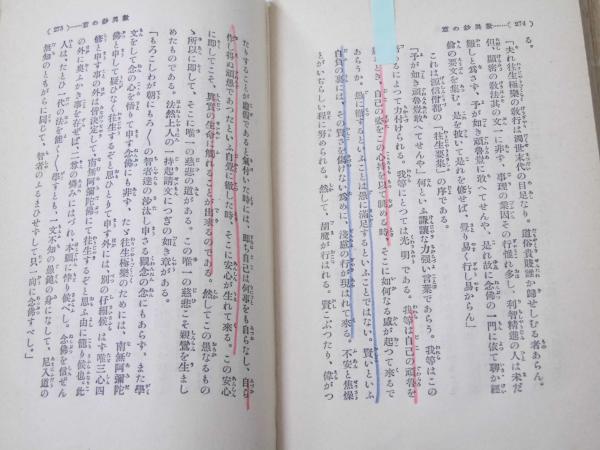 (274)……歎異鈔の意
る。
「夫れ往生極樂の敎行は濁世末代の目足なり。道俗貴賤誰か歸せしむる者あらん。
但、顯密の敎法其の文一に非ず、事理の業因その行惟れ多し、利智精進の人は未だ
難しと爲さず、予が如き頑魯豈敢へてせんや、是れ故に念佛の一門に依て聊か經
論の要文を集む。是を披いて是れを修せば、覺り易く行じ易からん」
これは源信僧都の『往生要集』の序である。
「予が如き頑魯豈敢へてせんや」何といふ謙讓な力強い言葉であらう。我等はこの
によつて力付けられる。我等にとつては光明である。我等は自己の頑魯を
自己の姿をこの心持を以て眺める時、そこに如何なる感が起つて來るで
あらうか。愚に徹するといふことは愚に滿足するといふことではない。賢いといふ
自負の裏には、その賢さを傷けない爲めに、淺猿の行が現はれて來る。不安と焦燥
とがいたらしい程に努められる。然して、胡魔が行はれる。賢こぶつたり、偉がつ
歎異鈔の意……(275)
たりすることが虛假であると氣付いた時には、卽ち自己は何事をも自らなし、自ら
作し得ぬ頑愚であつたといふ自覺に徹した時、そこに安心が生れて來る。この安心
に卽してこそ、眞實の生命に觸れることが出來るのである。然してこの愚なるもの
ゝ所以に卽して、そこに唯一の慈悲の道がある。この唯一の慈悲こそ親鸞を生まし
めたものである。法然上人の一枚起請文につぎの如き章がある。
「もろこしわが朝にもろ〱の智者達の沙汰し申さるゝ觀念の念にもあらず、また學
文をして念の心を悟りて申す念佛にも非ず、たゞ往生極樂のためには、南無阿彌陀
佛と申して疑ひなく往生するぞと思ひとりて申す外には、別の仔細候はず唯三心四
修と申す事の外は皆決定して、南無阿彌陀佛にて往生するぞと思ふ由に籠り候也。此
の外に奧ふかき事を存ぜば、二尊の憐みにはづれ、本願に侍り候べし。念佛を信ぜん
人は、たとひ一代の法を能く〱學すとも、一文不知の愚鈍の身になして、尼入道の
無知のともがらに同じて、智者のふるまひせずして只一向に念佛すべし。」